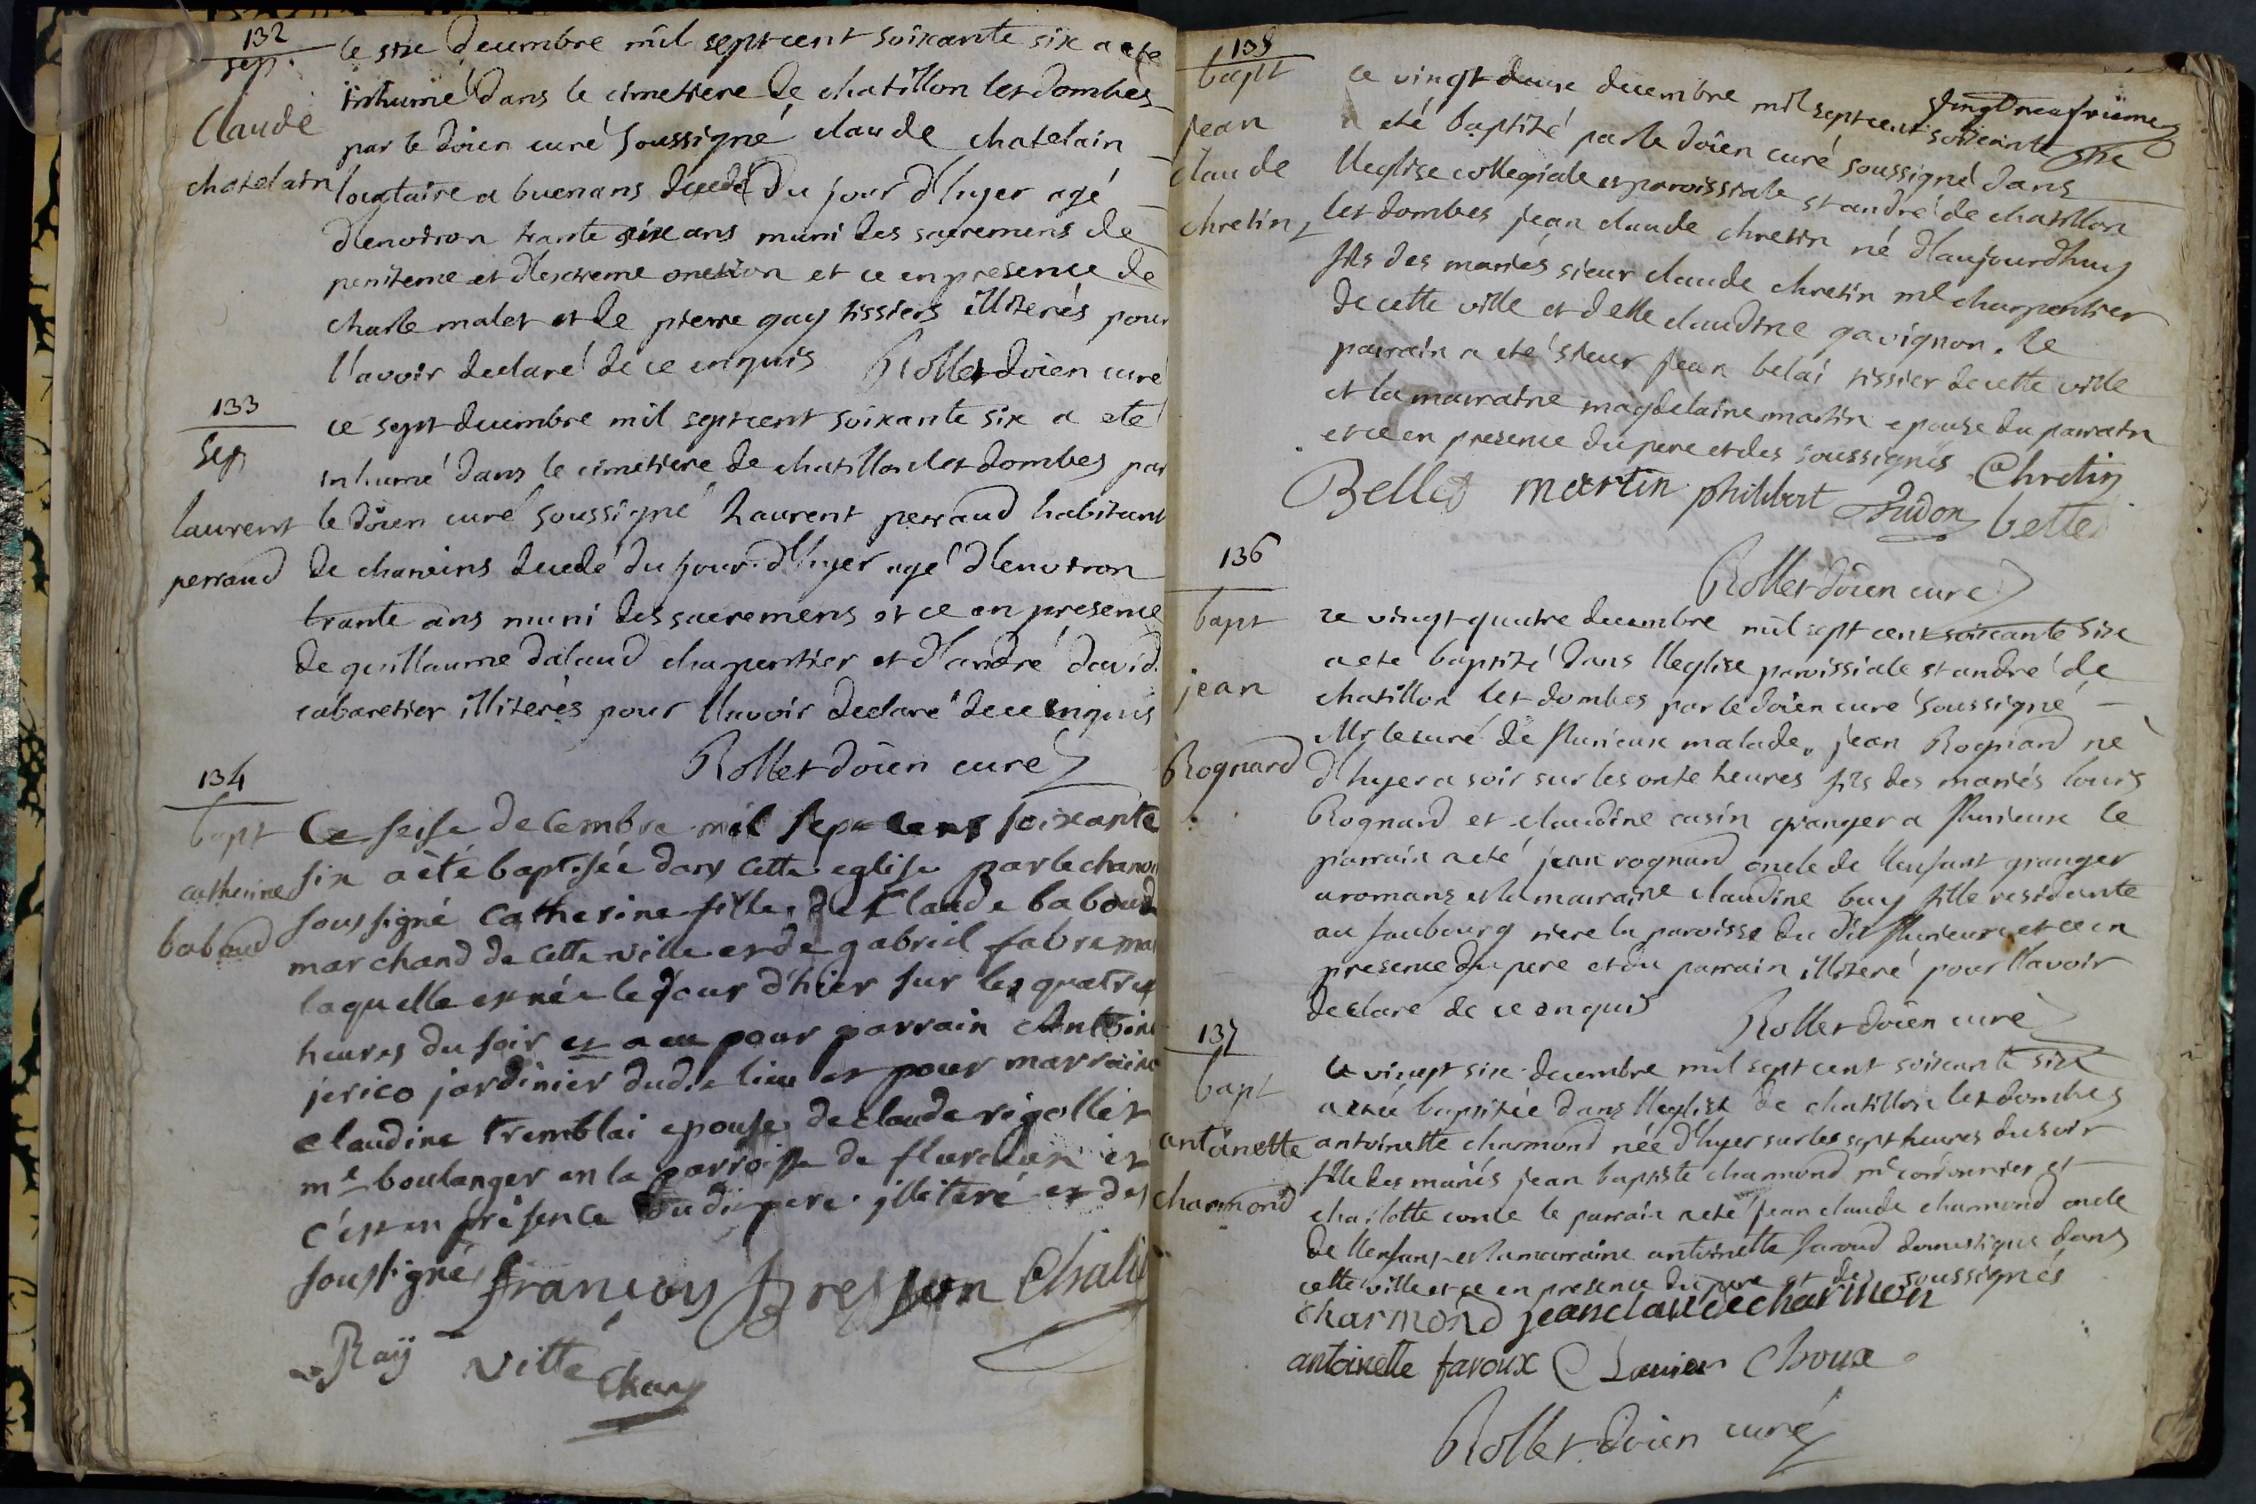 132
sep.
Claude
chatelain
le six decembre mil sept cent soixante six a ete
inhumé dans le cimetiere de chatillon les dombes
par le doïen curé soussigné claude chatelain
locataire a buenans decedé du jour d'hyer agé
d'environ trante six ans muni des sacremens de
penitence et d'extreme onction et ce en presence de
charle malet et de pierre gay tissiers illiterés pour
l'avoir declaré de ce enquis Rollet doïen curé
133
Sep
laurent
perraud
ce sept decembre mil sept cent soixante six a eté
inhumé dans le cimetiere de chatillon les dombes par
le doïen curé soussigné Laurent perraud habitant
de chaneins decedé du jour d'hyer agé d'environ
trante ans muni des sacremens et ce en presence
de guillaume dalaud charpentier et d'andré david
cabaretier illiterés pour l'avoir declaré de ce enquis
Rollet doïen curé
134
bapt
catherine
baboud
Ce seise decembre mil sept cens soixante
six a èté baptisée dans cette eglise par le chanoi
soussigné catherine fille de Claude baboud
marchand de cette ville et de gabriel fabre ma
laquelle est née le jour d'hier sur les quatre
heures du soir et a eu pour parrain Antoine
jerico jardinier dudit lieu et pour marraine
claudine tremblai epouse de claude rigollet
me boulanger en la parroisse de fleurieux et
c'est en présence dudit pere illiteré et des
soussignés françoys Bresson Chali
Raÿ vitte Chary
135
bapt
jean
claude
chretin
vingt neufvieme
ce vingt deux decembre mil sept cent soixante six
a eté baptizé par le doïen curé soussigné dans
l'eglise collegiale et paroissiale st andré de chatillon
les dombes jean claude chretin né d'aujourdhuy
fils des mariés sieur claude chretin me charpentier
de cette ville et delle claudine gavignon. le
parrain a eté sieur jean belai tissier de cette ville
et la marraine magdelaine martin epouse du parrain
et ce en presence du pere et des soussignés Chretin
Belley martin philibert Dudon belle
Rollet doïen curé
136
bapt
jean
Rognard
ce vingt quatre decembre mil sept cent soixante six
a ete baptizé dans l'eglise paroissiale st andré de
chatillon les dombes par le doïen curé soussigné
Mr le curé de flurieux malade, jean Rognard né
d'hyer a soir sur les onze heures fils des mariés louis
Rognard et claudine casin granger a flurieux le
parrain a eté jean rognard oncle de l'enfant granger
a romans et la marraine claudine buy fille residante
au faubourg riere la paroisse du dit flurieux et ce en
presence du pere et du parrain illiteré pour l'avoir
declaré de ce enquis
Rollet doïen curé
137
bapt
antoinette
charmond
ce vingt six decembre mil sept cent soixante six
a etée baptizée dans l'eglise de chatillon les dombes
antoinette charmond née d'hyer sur les sept heures du soir
fille des mariés jean baptiste charmond me cordonnier et
charlotte conte le parrain a eté jean claude charmond oncle
de l'enfant et la marraine antoinette faroud domestique dans
cette ville et ce en presence du pere et des soussignés
charmond jeanclaudecharmon
antoinette faroux Laurien Choux
Rollet doïen curé